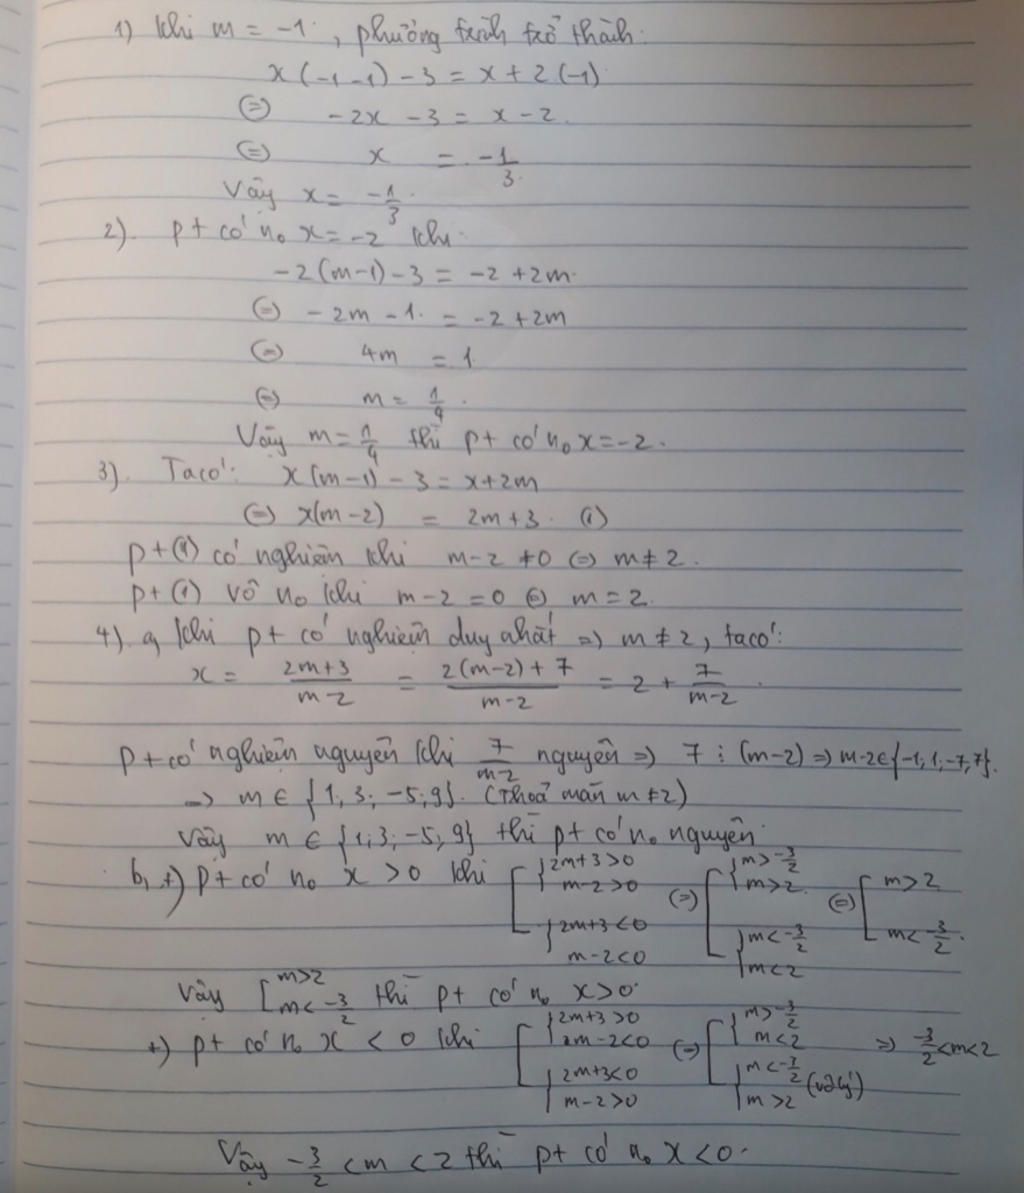 1) Khi m = -1, phương trình trở thành:
x(-1-1) - 3 = x + 2(-1)
(=) -2x - 3 = x - 2.
(=) x = -1/3.
Vậy x = -1/3.
2). pt có n₀ x = -2 khi:
-2(m-1) - 3 = -2 + 2m.
(=) -2m - 1. = -2 + 2m
(=) 4m = 1.
(=) m = 1/4.
Vậy m = 1/4 thì pt có n₀ x = -2.
3). Ta có: x(m-1) - 3 = x + 2m
(=) x(m-2) = 2m + 3. (1)
pt (1) có nghiệm khi m - 2 ≠ 0 (=) m ≠ 2.
pt (1) vô n₀ khi m - 2 = 0 (=) m = 2.
4). a, Khi pt có nghiệm duy nhất => m ≠ 2, ta có:
x = (2m+3)/(m-2) = (2(m-2) + 7)/(m-2) = 2 + 7/(m-2).
Pt có nghiệm nguyên khi 7/(m-2) nguyên => 7 ⋮ (m-2) => m-2 ∈ {-1; 1; -7; 7}.
=> m ∈ {1; 3; -5; 9}. (Thoả mãn m ≠ 2)
Vậy m ∈ {1; 3; -5; 9} thì pt có n₀ nguyên.
b, +) pt có n₀ x > 0 khi [ { 2m+3 > 0 m-2 > 0 { 2m+3 < 0 m-2 < 0 (=) [ { m > -3/2 m > 2. { m < -3/2 m < 2 (=) [ m > 2 m < -3/2.
Vậy [ m > 2 m < -3/2 thì pt có n₀ x > 0.
+) pt có n₀ x < 0 khi [ { 2m+3 > 0 2m-2 < 0 { 2m+3 < 0 m-2 > 0 (=) [ { m > -3/2 m < 2 { m < -3/2 m > 2 (vô lý) => -3/2 < m < 2
Vậy -3/2 < m < 2 thì pt có n₀ x < 0.